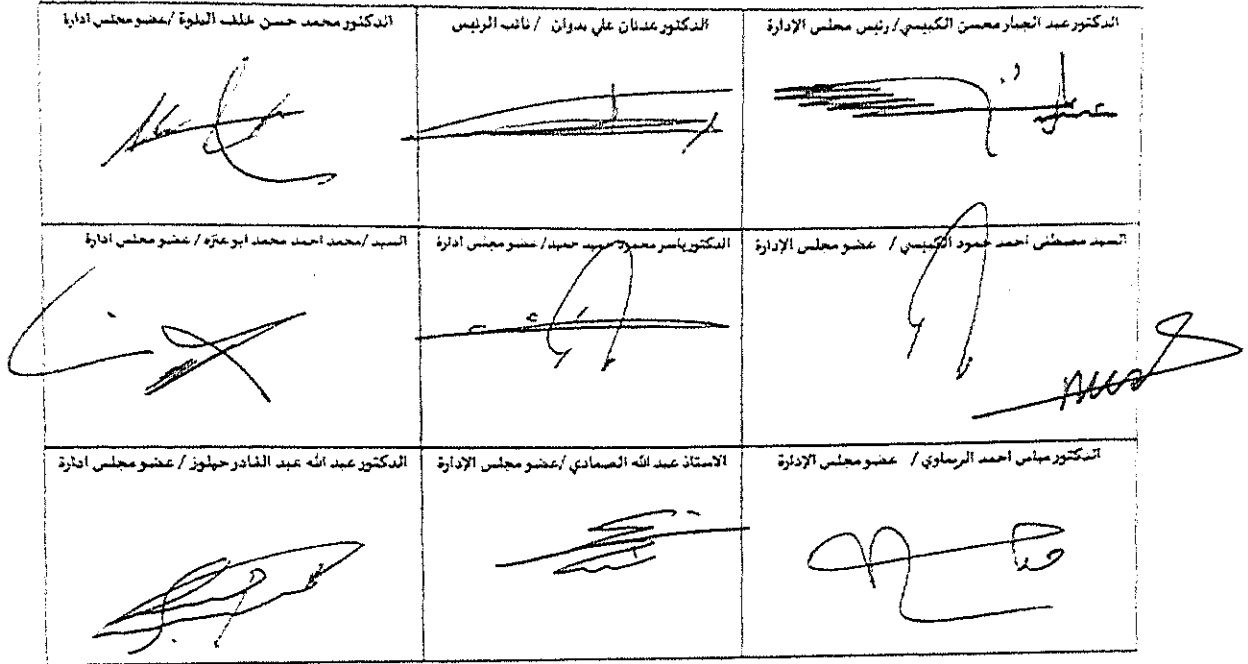 الدكتور عبد الجبار محسن الكبيسي / رئيس مجلس الإدارة
الدكتور عدنان علي بدوان / نائب الرئيس
الدكتور محمد حسن خلف /عضو مجلس ادارة
السيد مصطفى احمد حمود الكبيسي / عضو مجلس الإدارة
الدكتور ياسر محمود حميد / عضو مجلس ادارة
السيد /محمد احمد محمد ابو عنزه / عضو مجلس ادارة
الدكتور احمد الريماوي / عضو مجلس الإدارة
الاستاذ عبد الله الصمادي /عضو مجلس الإدارة
الدكتور عبد الله عبد القادر / عضو مجلس ادارة